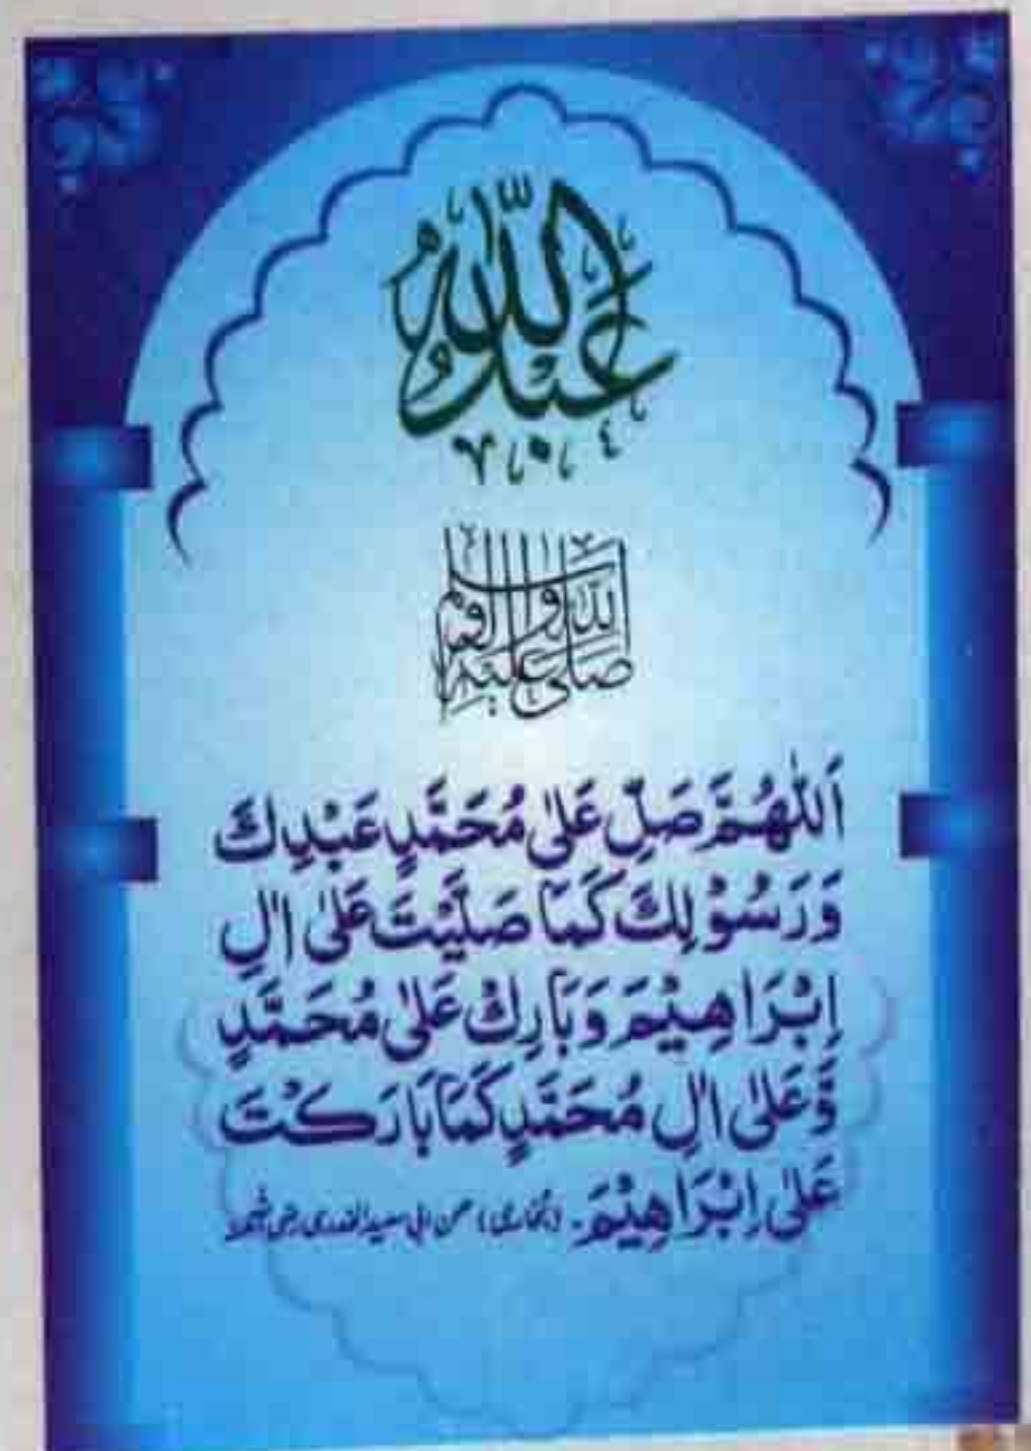 عَبْدُ اللّٰهِ
صَلَّى اللّٰهُ عَلَيْهِ وَآلِهِ وَسَلَّم
اَللّٰهُمَّ صَلِّ عَلٰى مُحَمَّدٍ عَبْدِكَ
وَرَسُوْلِكَ كَمَا صَلَّيْتَ عَلٰى اٰلِ
اِبْرَاهِيْمَ وَبَارِكْ عَلٰى مُحَمَّدٍ
وَّعَلٰى اٰلِ مُحَمَّدٍ كَمَا بَارَكْتَ
عَلٰى اِبْرَاهِيْمَ. (بخاری) عن ابی سعید الخدری رضی اللہ عنہ